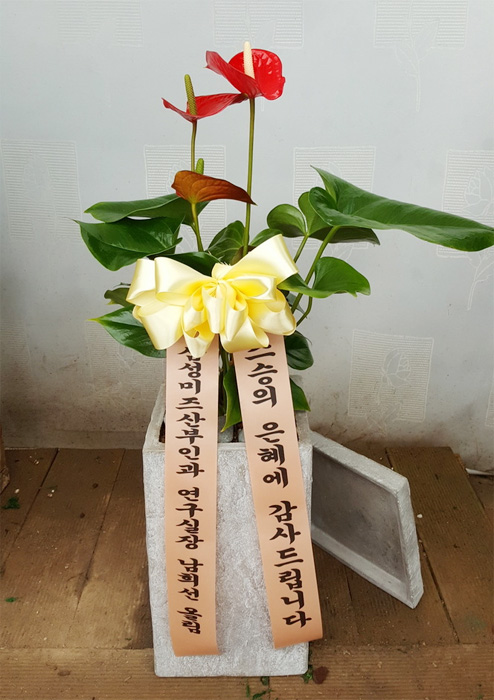 삼성미즈산부인과 연구실장 남희선 올림
스승의 은혜에 감사드립니다